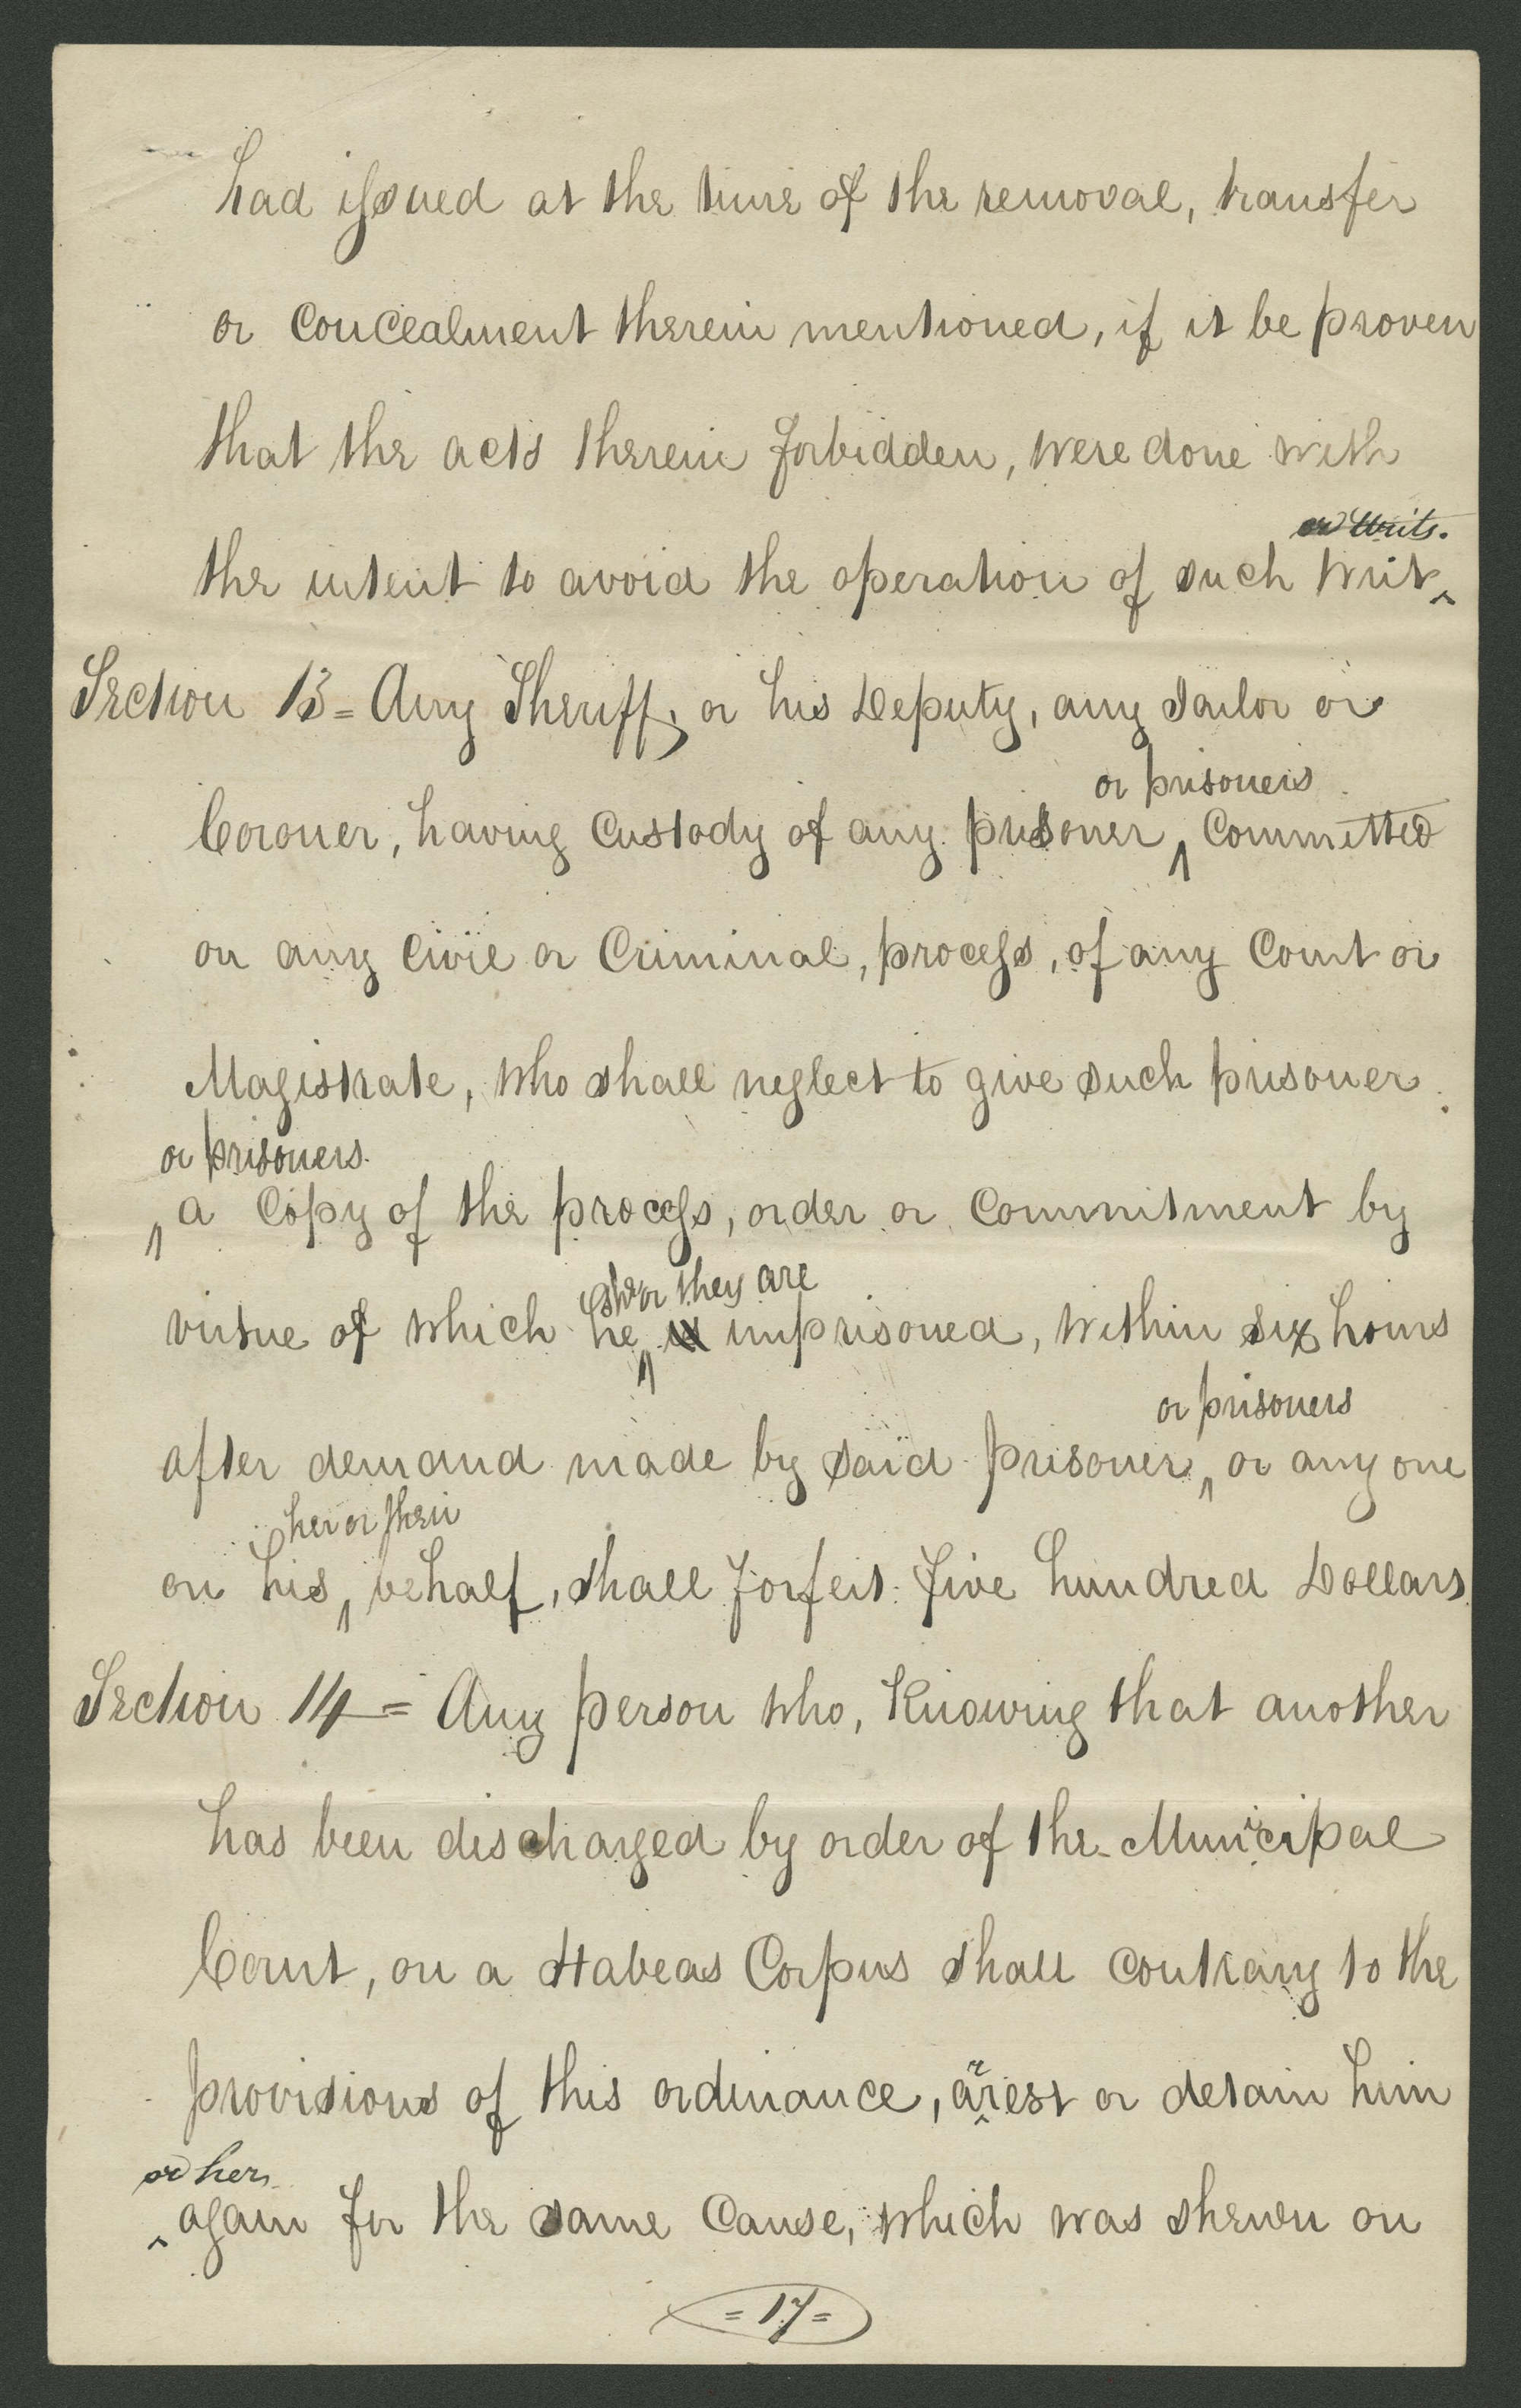 had issued at the time of the removal, transfer
or Concealment therein mentioned, if it be proven
that the acts therein forbidden, were done with
or writs.
the intent to avoid the operation of such Writ ^
Section 13 = Any Sheriff, or his Deputy, any Jailor or
or prisoners
Coroner, having Custody of any prisoner ^ Committed
on any Civil or Criminal, process, of any Court or
Magistrate, who shall neglect to give such prisoner
or prisoners.
^ a Copy of the process, order or Commitment by
she or they are
virtue of which he ^ is imprisoned, within six hours
or prisoners
after demand made by said prisoner ^ or any one
her or their
on his ^ behalf, shall forfeit five hundred Dollars
Section 14 = Any person who, Knowing that another
has been discharged by order of the Municipal
Court, on a Habeas Corpus shall contrary to the
provisions of this ordinance, arrest or detain him
or her
^ again for the same Cause, which was shewn on
= 17 =